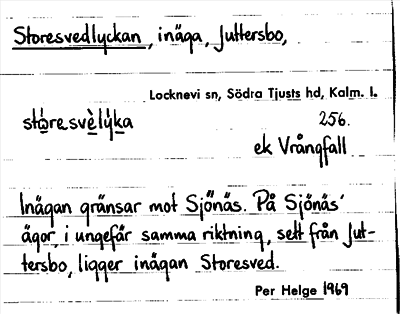 Storesvedlyckan, inäga, Juttersbo,
Locknevi sn, Södra Tjusts hd, Kalm. l.
256.
ek Vrångfall
Inägan gränsar mot Sjönäs. På Sjönäs'
ägor, i ungefär samma riktning, sett från Jut-
tersbo, ligger inägan Storesved.
Per Helge 1969